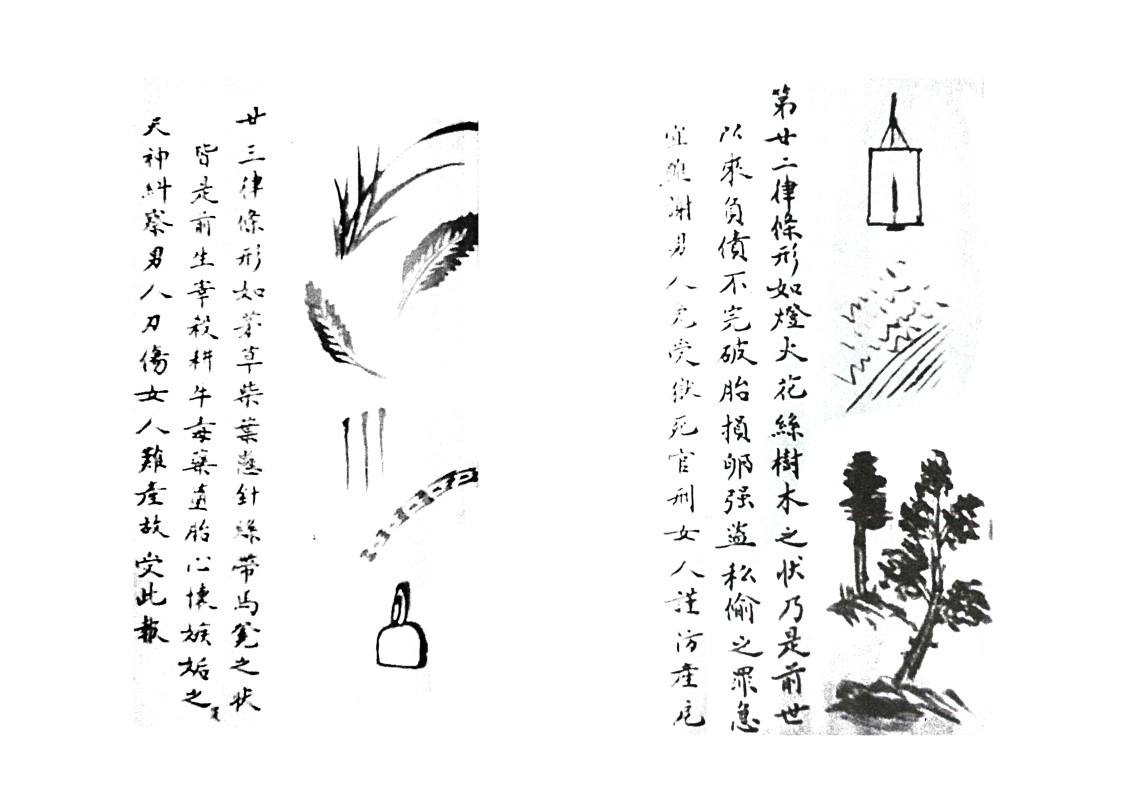 第廿二律條形如燈火花絲樹木之狀乃是前世
以來負債不完破胎損卵强盜私偷之罪急
宜 謝男人 受獄死官刑女人謹防產厄
廿三律條形如茅草柴葉 針絲帶馬 之狀
皆是前生宰殺耕牛毒藥 胎心懷嫉妬之
天神糾察男人刀傷女人難產故受此報